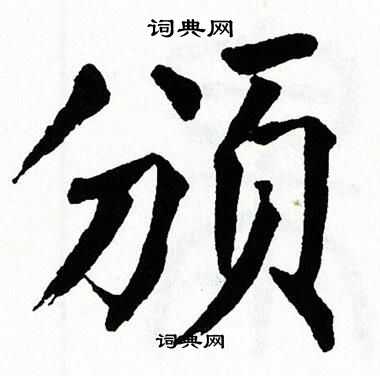 词典网
頒
词典网